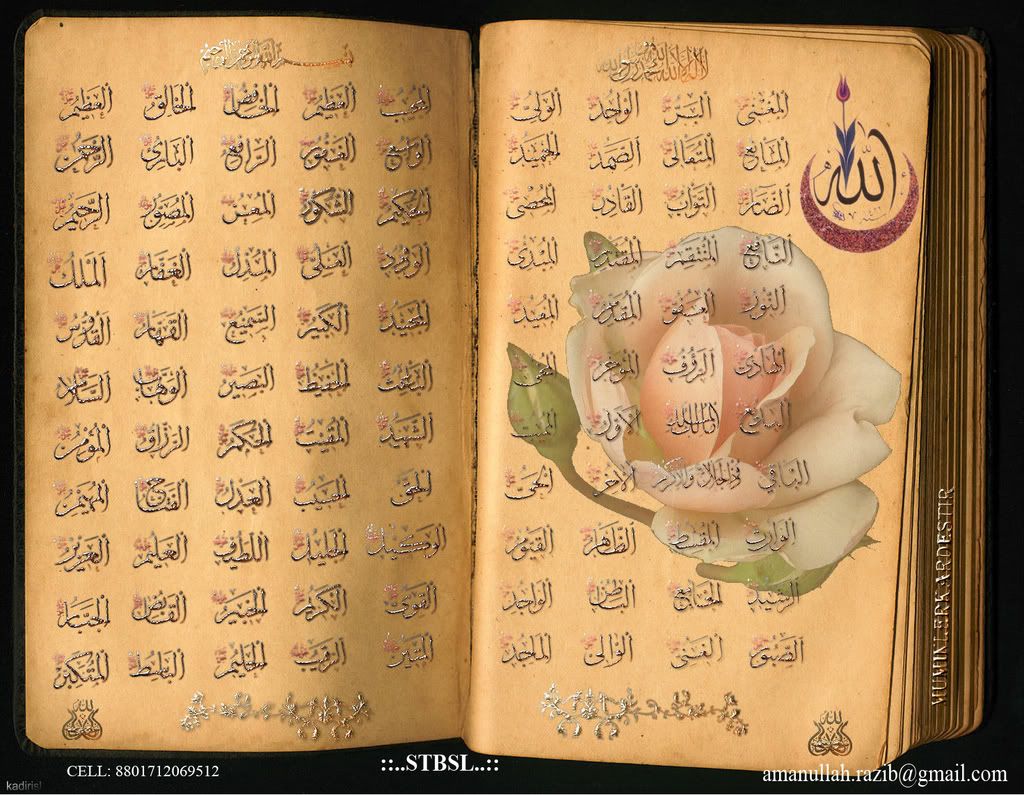 بسم الله الرحمن الرحيم
المجيب العظيم الخالق العظيم
الواسع الغفور الرافع البارئ الرحمن
الحكيم الشكور المعز المصور الرحيم
الودود العلي المذل الغفار الملك
المجيد الكبير السميع القهار القدوس
الباعث الحفيظ البصير الوهاب السلام
الشهيد المقيت الحكم الرزاق المؤمن
الحق الحسيب العدل الفتاح المهيمن
الوكيل الجليل اللطيف العليم العزيز
القوي الكريم الخبير القابض الجبار
المتين الرقيب الحليم الباسط المتكبر
لا إله إلا الله محمد رسول الله
الله
المغني البر الواحد الولي
المانع المتعالي الصمد الحميد
الضار التواب القادر المحصي
النافع المنتقم المقتدر المبدئ
النور العفو المقدم المعيد
الهادي الرؤف المؤخر المحيي
البديع مالك الملك الأول المميت
الباقي ذو الجلال والإكرام الآخر الحي
الوارث المقسط الظاهر القيوم
الرشيد الجامع الباطن الواجد
الصبور الغني الوالي الماجد
MUMINLERKARDESTIR
CELL: 8801712069512
::..STBSL..::
amanullah.razib@gmail.com